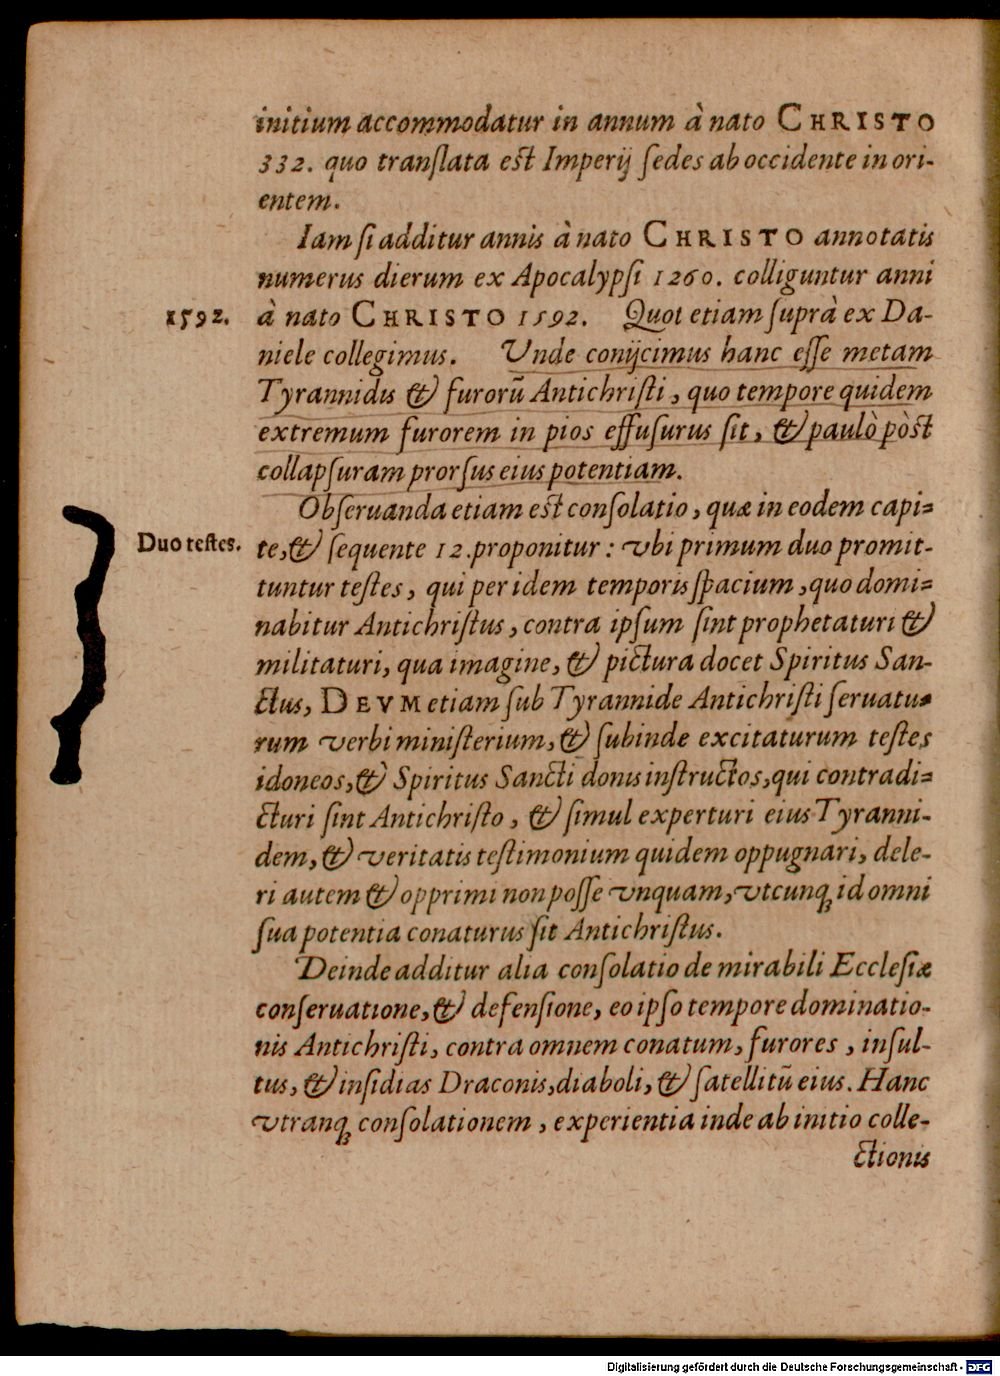 initium accommodatur in annum à nato CHRISTO
332. quo tranſlata eſt Imperij ſedes ab occidente in ori-
entem.
Iam ſi additur annis à nato CHRISTO annotatis
numerus dierum ex Apocalypſi 1260. colliguntur anni
1592.
à nato CHRISTO 1592. Quot etiam ſuprà ex Da-
niele collegimus. Vnde conijcimus hanc eſſe metam
Tyrannidis & furorū Antichriſti, quo tempore quidem
extremum furorem in pios effuſurus ſit, & paulò pòſt
collapſuram prorſus eius potentiam.
Obſeruanda etiam eſt conſolatio, quæ in eodem capi=
Duo teſtes.
te, & ſequente 12. proponitur: vbi primum duo promit-
tuntur teſtes, qui per idem temporis ſpacium, quo domi=
nabitur Antichriſtus, contra ipſum ſint prophetaturi &
militaturi, qua imagine, & pictura docet Spiritus San-
ctus, DEVM etiam ſub Tyrannide Antichriſti ſeruatu-
rum verbi miniſterium, & ſubinde excitaturum teſtes
idoneos, & Spiritus Sancti donis inſtructos, qui contradi=
cturi ſint Antichriſto, & ſimul experturi eius Tyranni-
dem, & veritatis teſtimonium quidem oppugnari, dele-
ri autem & opprimi non poſſe vnquam, vtcunqꝫ id omni
ſua potentia conaturus ſit Antichriſtus.
Deinde additur alia conſolatio de mirabili Eccleſiæ
conſeruatione, & defenſione, eo ipſo tempore dominatio-
nis Antichriſti, contra omnem conatum, furores, inſul-
tus, & inſidias Draconis, diaboli, & ſatellitū eius. Hanc
vtranqꝫ conſolationem, experientia inde ab initio colle-
ctionis
Digitalisierung gefördert durch die Deutsche Forschungsgemeinschaft - DFG